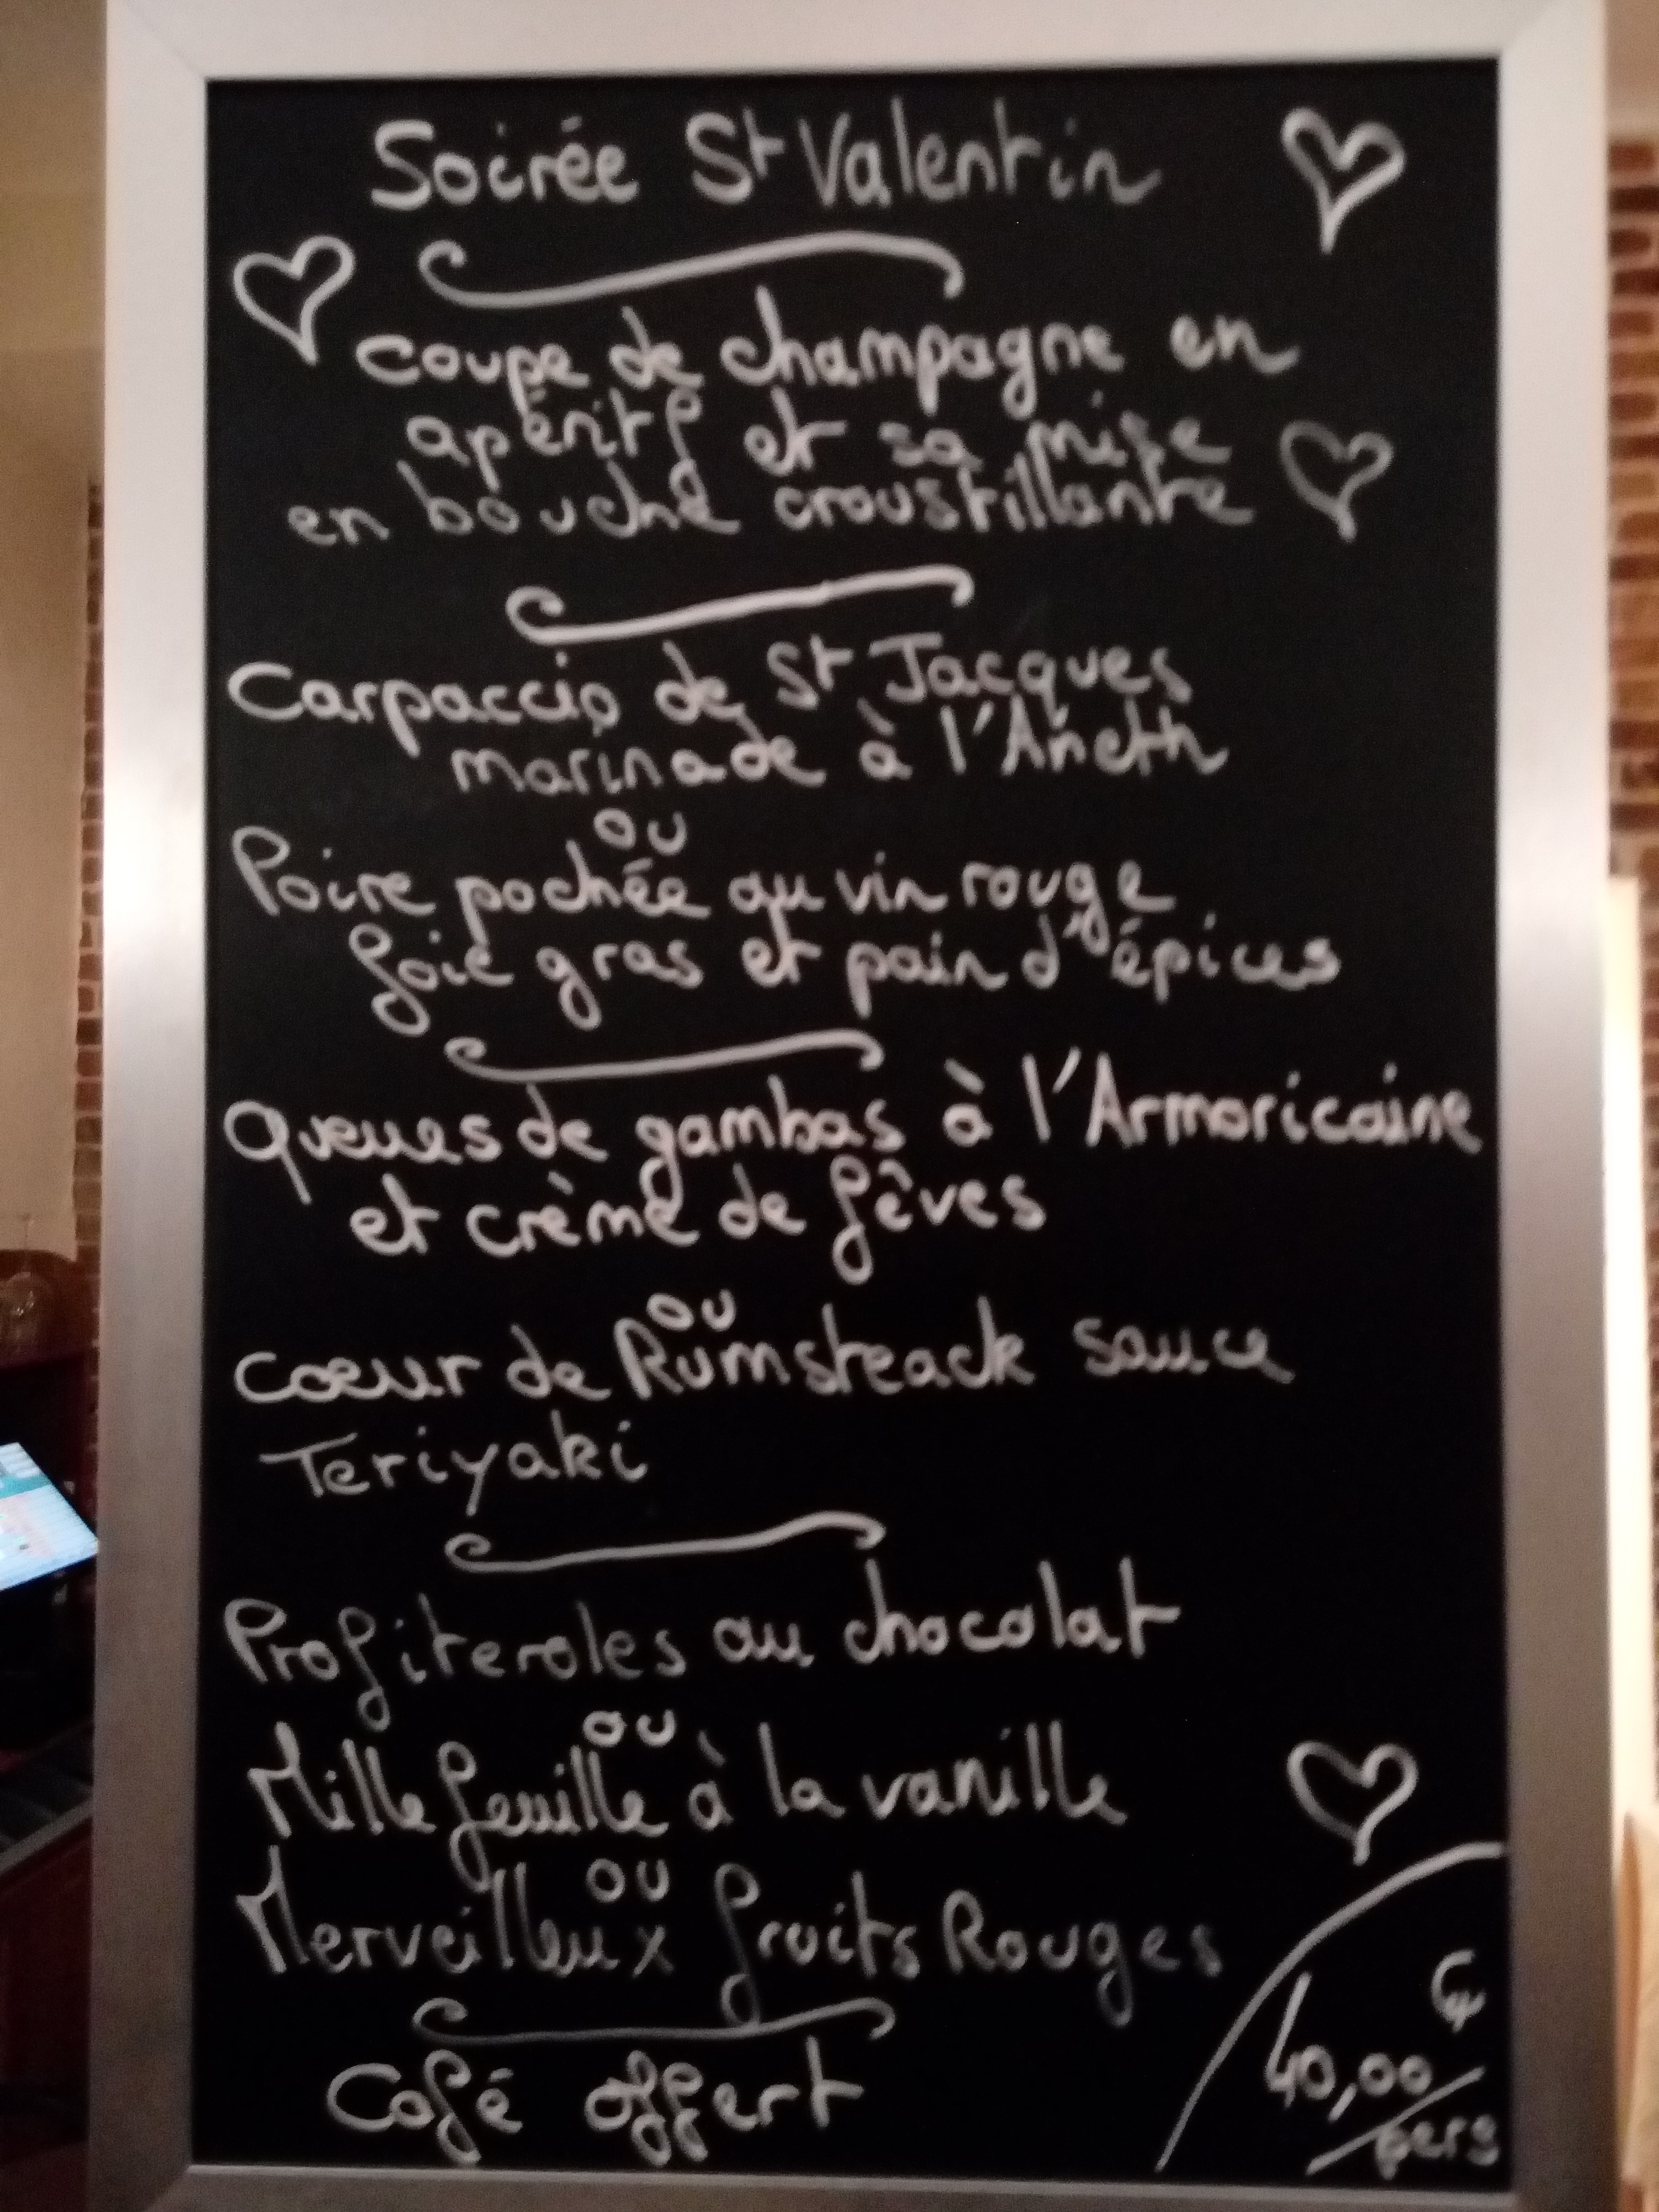 Soirée St Valentin
coupe de champagne en
apéritif et sa mise
en bouche croustillante
Carpaccio de St Jacques
marinade à l'Aneth
ou
Poire pochée au vin rouge
foie gras et pain d'épices
Queues de gambas à l'Armoricaine
et crème de fêves
ou
coeur de Rumsteack sauce
Teriyaki
Profiteroles au chocolat
ou
Mille feuille à la vanille
ou
Merveilleux fruits Rouges
Café offert
€
40,00
/pers